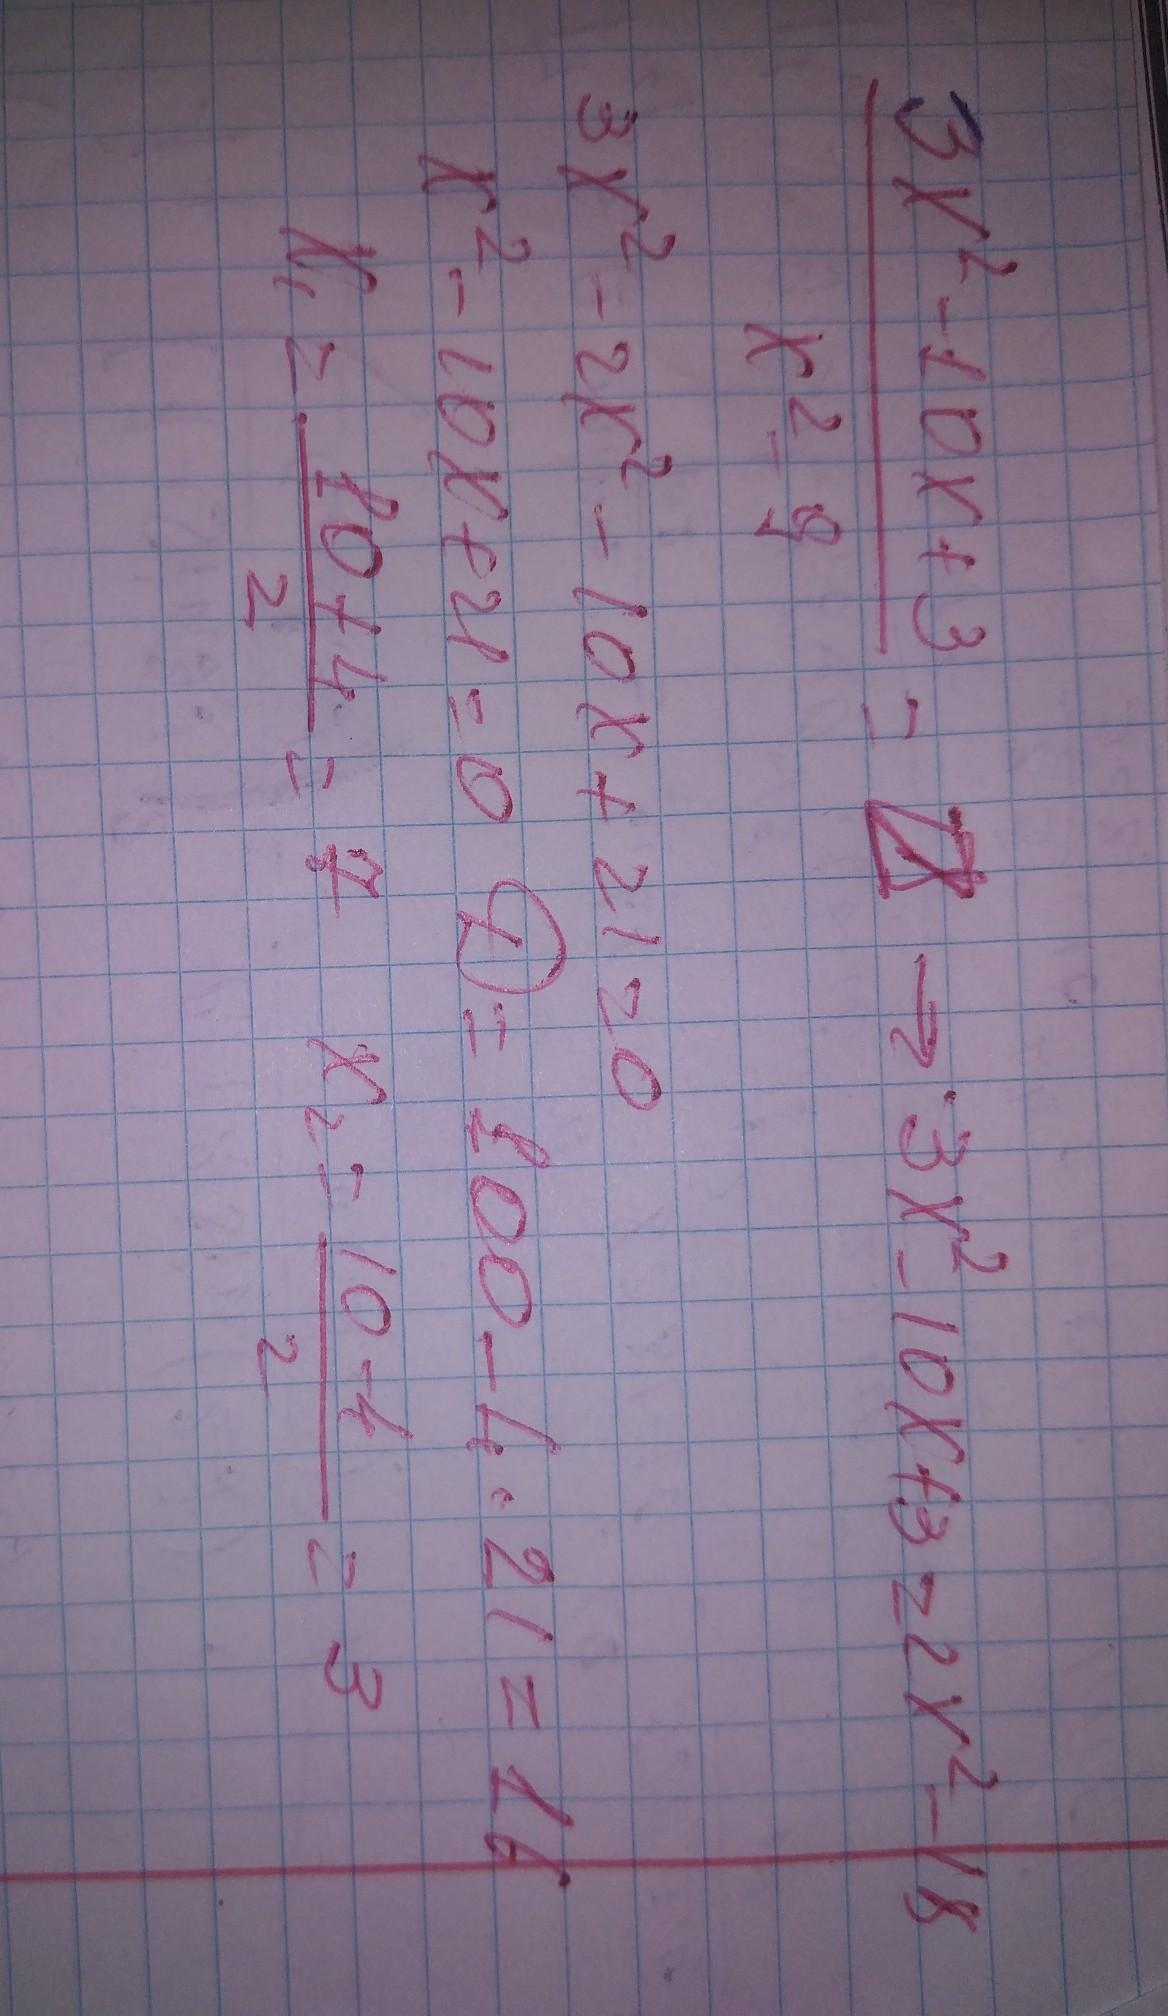 (3x² - 10x + 3)/(x² - 9) = 2 → 3x² - 10x + 3 = 2x² - 18
3x² - 2x² - 10x + 21 = 0
x² - 10x + 21 = 0 D = 100 - 4 · 21 = 16
x₁ = (10 + 4)/2 = 7 x₂ = (10 - 4)/2 = 3